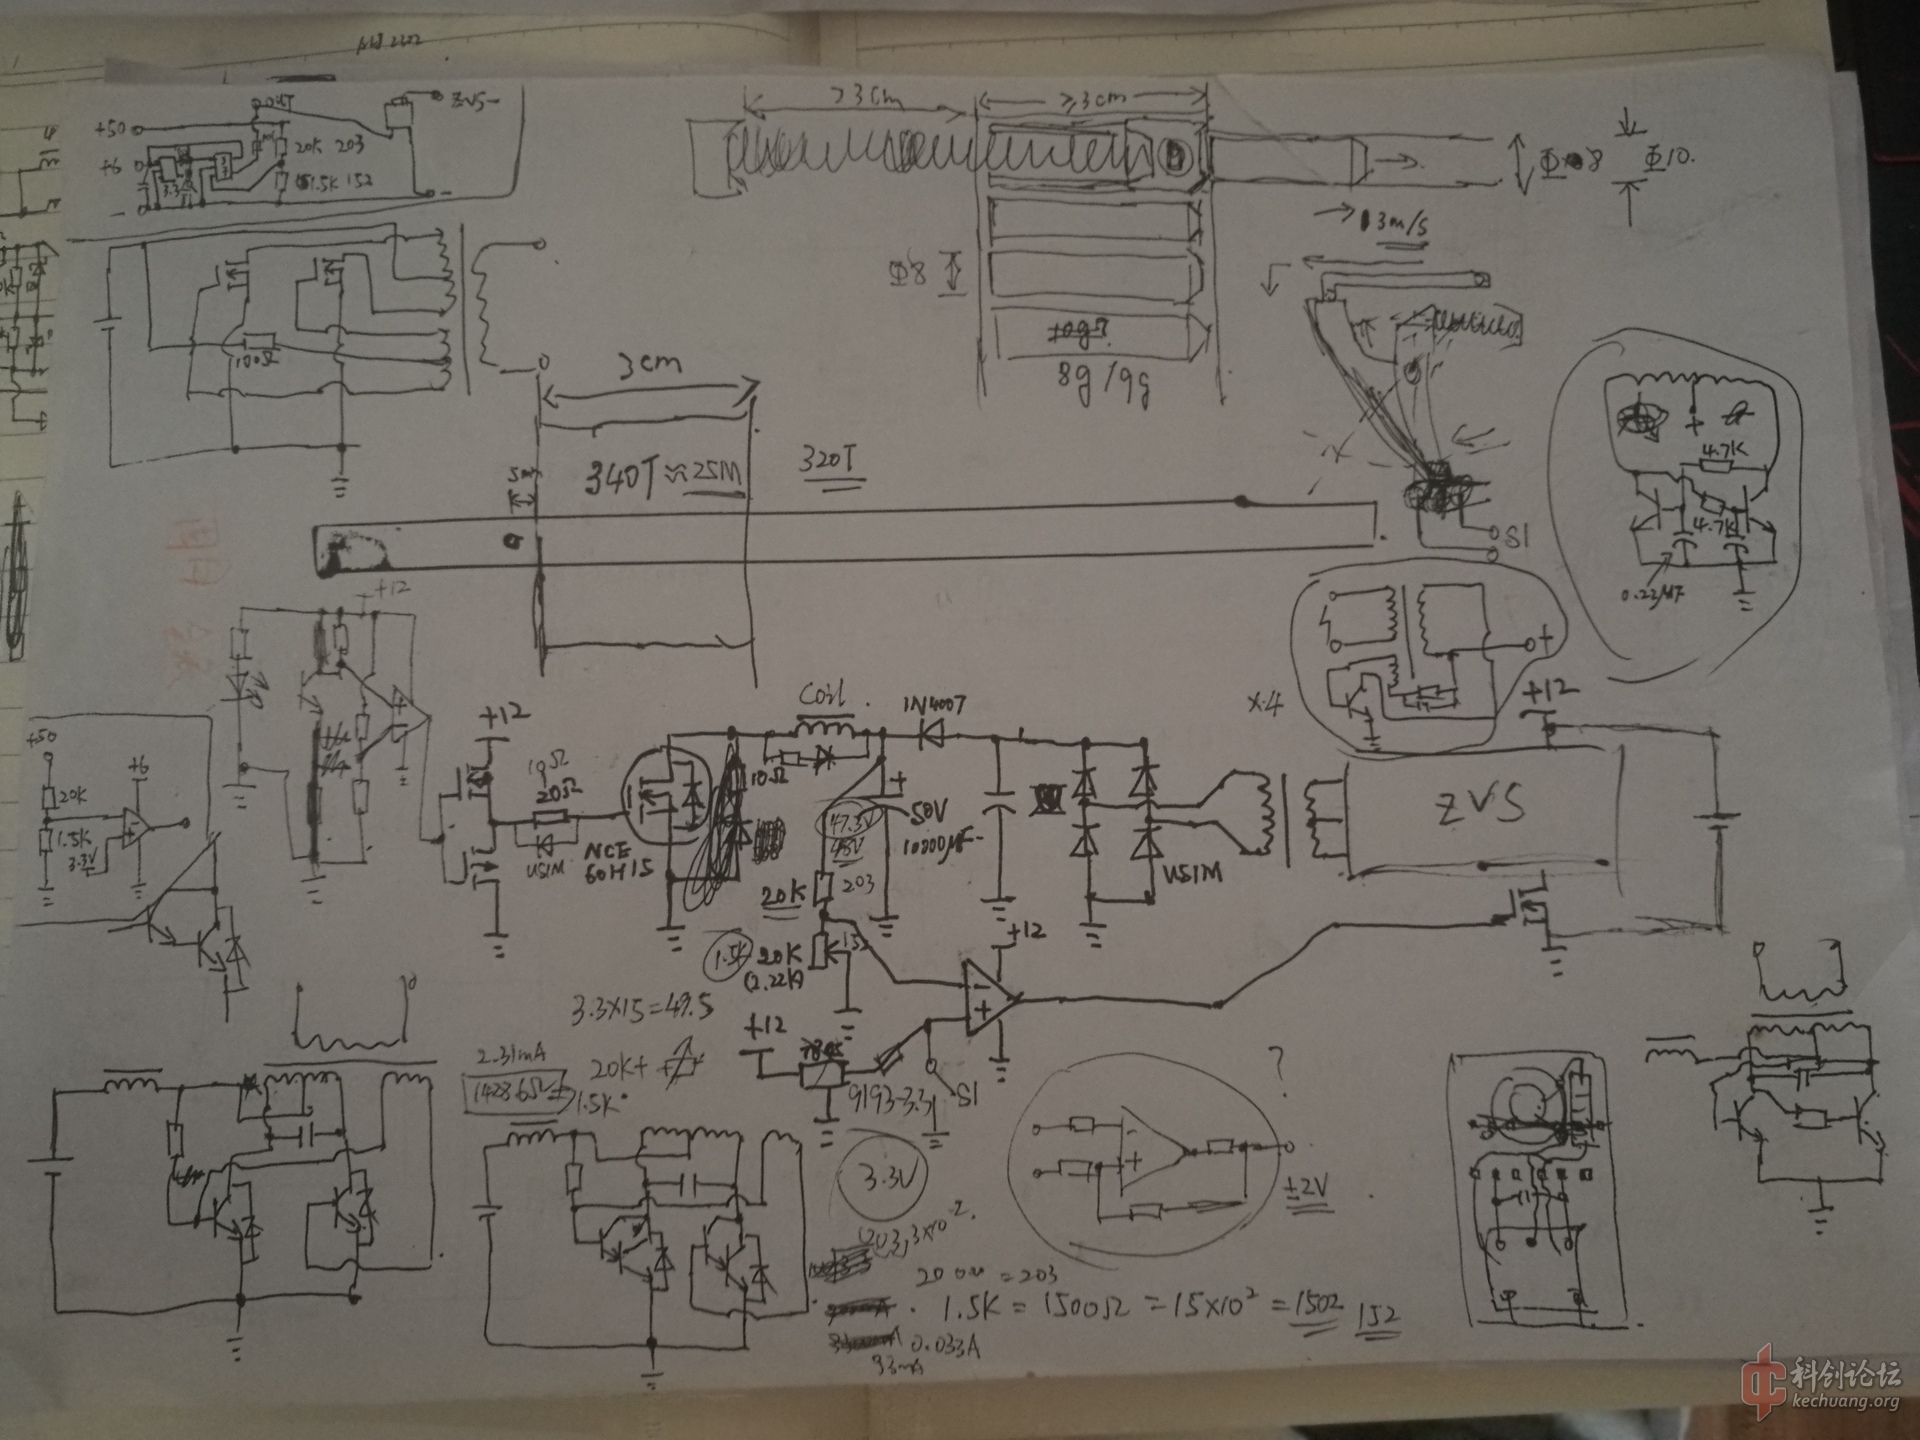 OUT
ZVS-
+50
+6
20K 203
1.5K 152
100Ω
>3cm
Φ8
Φ10.
13m/s
Φ8
8g/9g
3cm
340T≈25M
320T
S1
4.7K
4.7K
0.22μF
+12
+12
+50
20K
1.5K
3.3V
+6
20Ω
US1M
NCE
60H15
Coil
10Ω
1N4007
47.3V
48V
50V
10000μF
20K
203
1.5K
20K
152
(2.22K)
US1M
×4
+
+12
ZVS
+12
3.3×15=49.5
+12
9193-3.3
S1
2.31mA
1428.6Ω
20K+
1.5K
3.3V
?
±2V
=203
1.5K=1500Ω=15×10²=1502 152
0.033A
33mA
科创论坛
kechuang.org